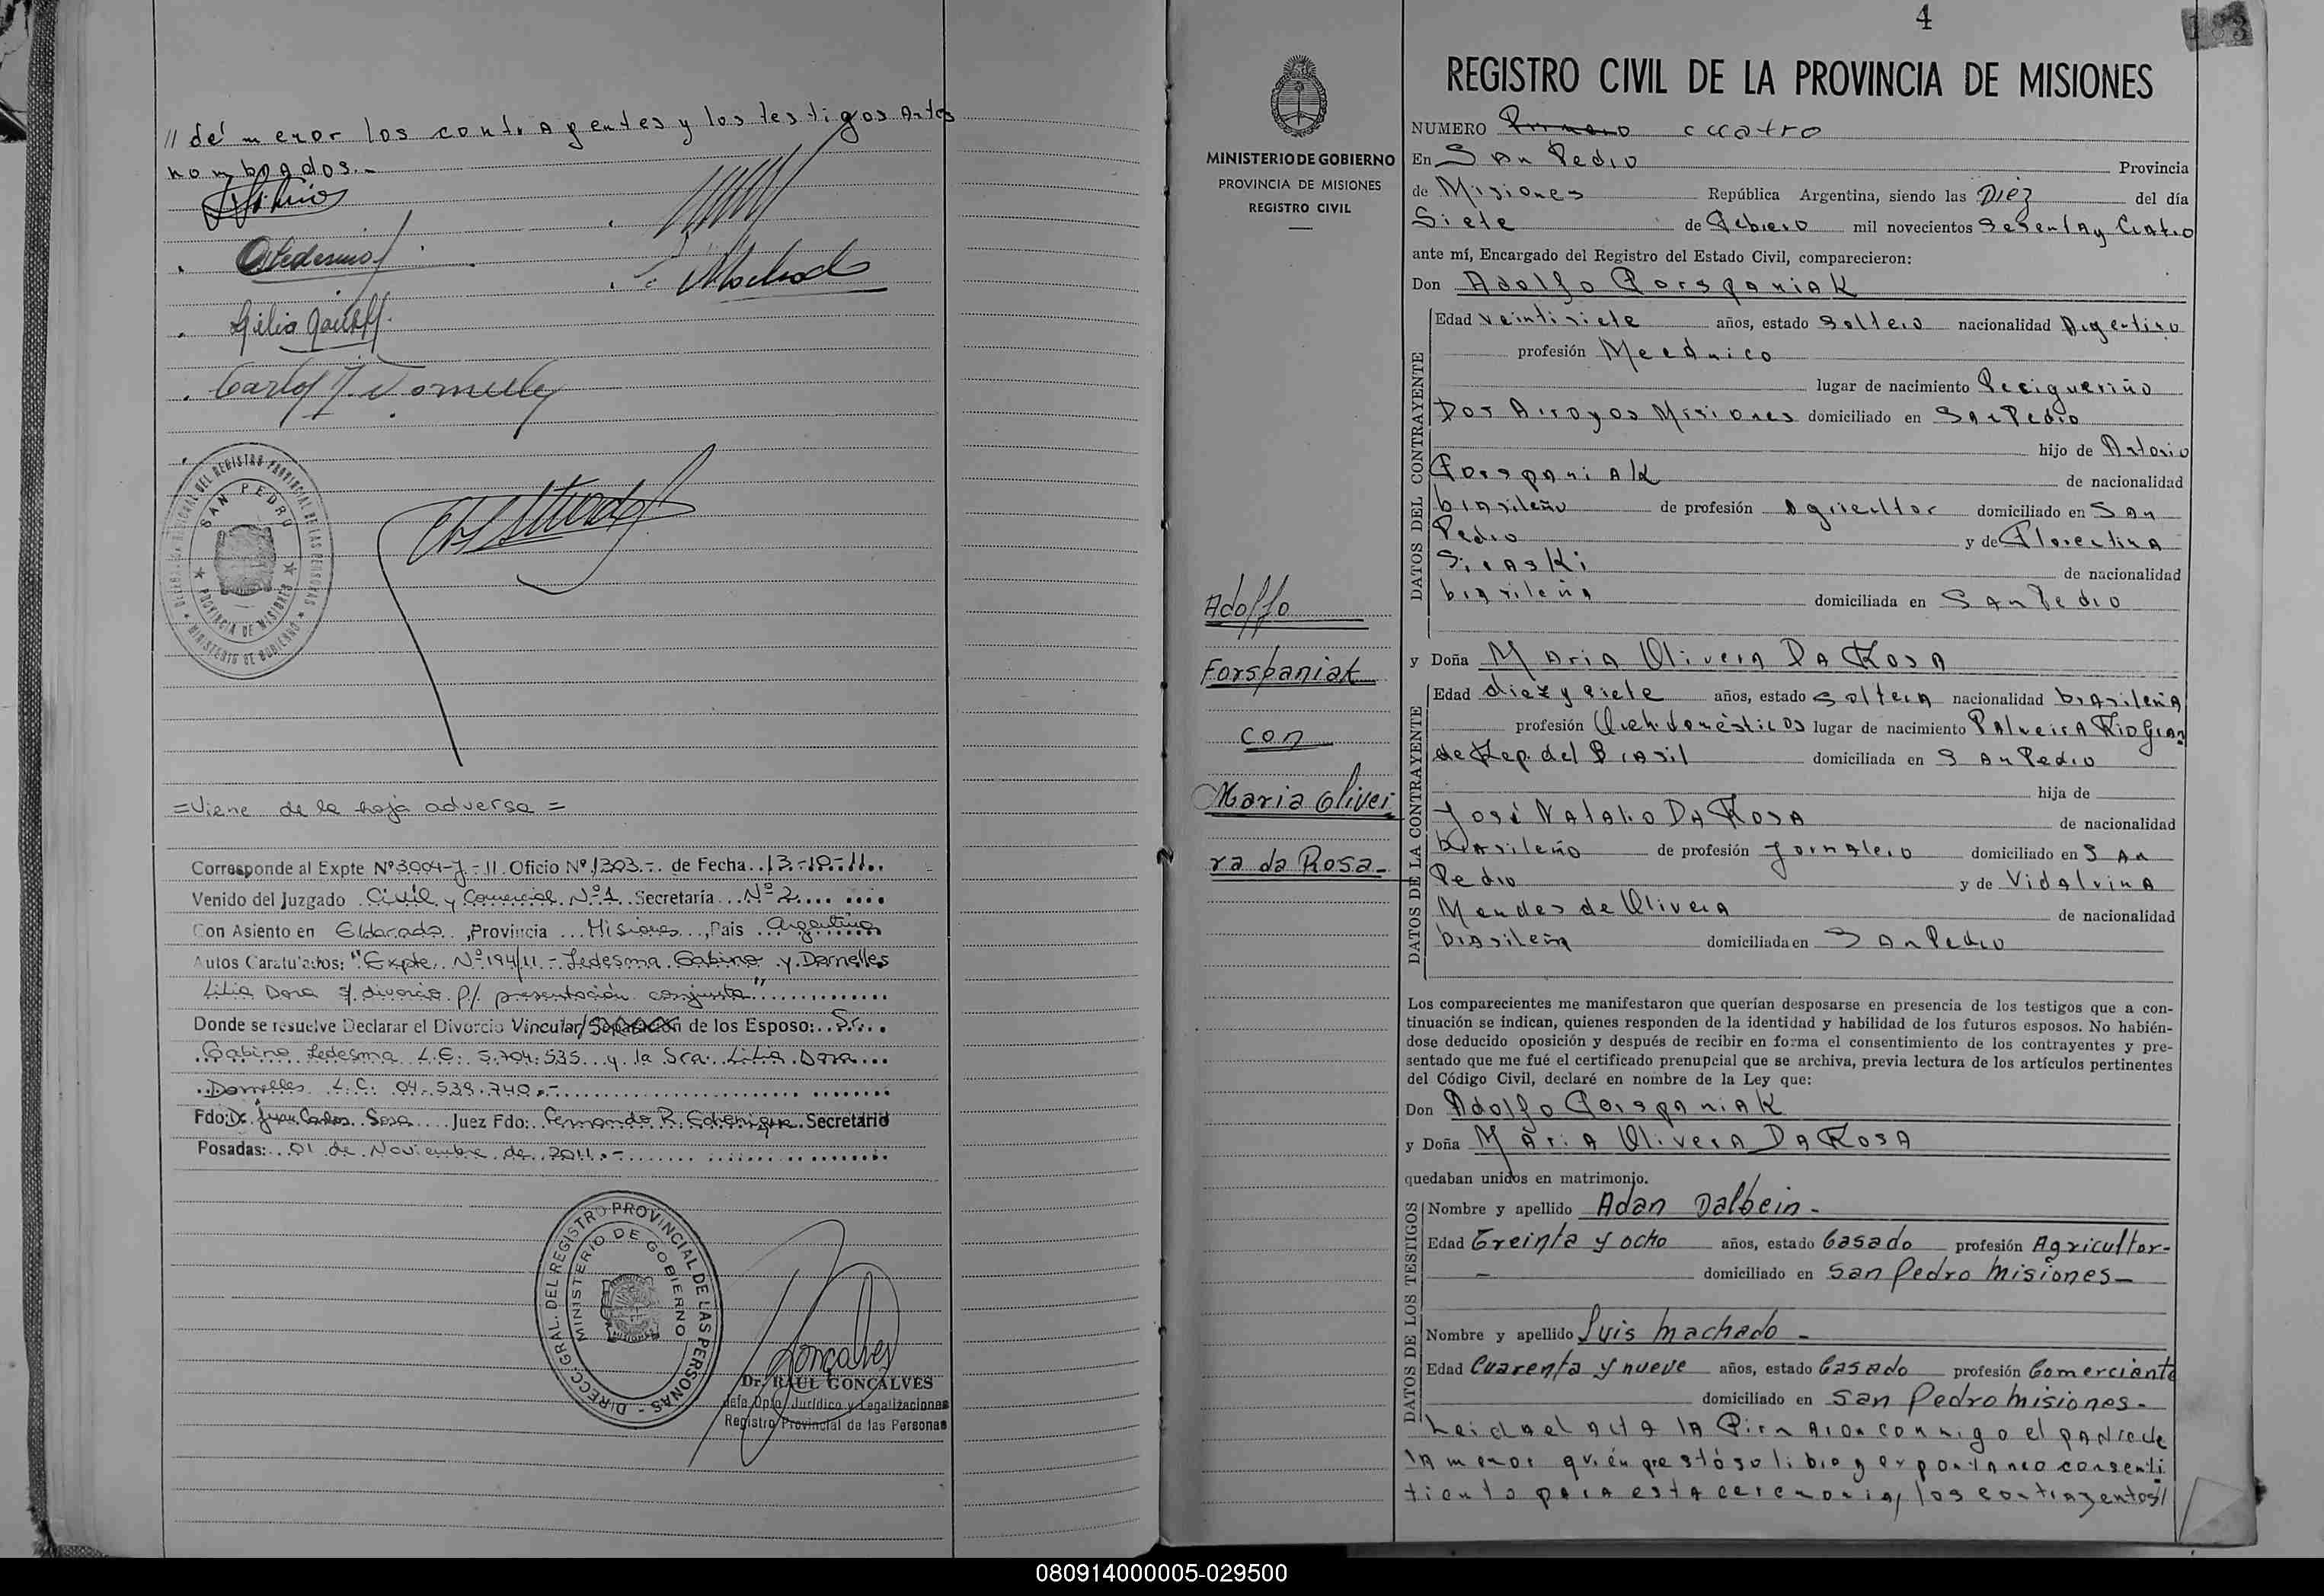 // de menor los contragentes y los testigos Antes
nombrados.-
Ledesma
Machado
Carlos
DEL REGISTRO PROVINCIAL DE LAS PERSONAS
SAN PEDRO
PROVINCIA DE MISIONES
MINISTERIO DE GOBIERNO
=Viene de la hoja adversa=
Corresponde al Expte Nº3004-J-11. Oficio Nº1303.-. de Fecha..13.-10.-11..
Venido del Juzgado Civil y Comercial Nº1 Secretaría...Nº2....
Con Asiento en Eldorado, Provincia...Misiones..., Pais Argentina
Autos Caratulados: "Expte. Nº194/11 - Ledesma Gabino y Dornelles
Lilia Dora s/ divorcio p/. presentación conjunta"
Donde se resuelve Declarar el Divorcio Vincular/Separación de los Esposo:..Sr...
Gabino Ledesma L.E: 5.704.535 y la Sra. Lilia Dora
Dornelles L.C: 04.539.740.-
Fdo: Dr. Juan Carlos Sosa Juez Fdo: Fernando R. Secretario
Posadas: 01 de Noviembre de 2011.-
DIRECC. GRAL. DEL REGISTRO PROVINCIAL DE LAS PERSONAS
MINISTERIO DE GOBIERNO
Dr. RAUL GONCALVES
Jefe Dpto. Jurídico y Legalizaciones
Registro Provincial de las Personas
4
REGISTRO CIVIL DE LA PROVINCIA DE MISIONES
MINISTERIO DE GOBIERNO
PROVINCIA DE MISIONES
REGISTRO CIVIL
Adolfo
Forspaniak
con
Maria Olivei
ra da Rosa-
NUMERO Primero cuatro
En San Pedro Provincia
de Misiones República Argentina, siendo las Diez del día
Siete de Febrero mil novecientos Sesenta y Cuatro
ante mí, Encargado del Registro del Estado Civil, comparecieron:
Don Adolfo Forspaniak
DATOS DEL CONTRAYENTE
Edad veintisiete años, estado Soltero nacionalidad Argentino
profesión Mecánico
lugar de nacimiento Picigueriño
Dos Arroyos Misiones domiciliado en San Pedro
hijo de Antonio
Forspaniak de nacionalidad
brasileño de profesión Agricultor domiciliado en San
Pedro y de Florentina
Siraski de nacionalidad
brasileña domiciliada en San Pedro
y Doña Maria Olivera Da Rosa
DATOS DE LA CONTRAYENTE
Edad diez y siete años, estado soltera nacionalidad brasileña
profesión Queh. domésticos lugar de nacimiento Palmeira Rio Gran
de Rep. del Brasil domiciliada en San Pedro
hija de
José Natalio Da Rosa de nacionalidad
brasileño de profesión Jornalero domiciliado en San
Pedro y de Vidalvina
Mendes de Olivera de nacionalidad
brasileña domiciliada en San Pedro
Los comparecientes me manifestaron que querían desposarse en presencia de los testigos que a con-
tinuación se indican, quienes responden de la identidad y habilidad de los futuros esposos. No habién-
dose deducido oposición y después de recibir en forma el consentimiento de los contrayentes y pre-
sentado que me fué el certificado prenupcial que se archiva, previa lectura de los artículos pertinentes
del Código Civil, declaré en nombre de la Ley que:
Don Adolfo Forspaniak
y Doña Maria Olivera Da Rosa
quedaban unidos en matrimonio.
DATOS DE LOS TESTIGOS
Nombre y apellido Adan Dalbein-
Edad Treinta y ocho años, estado Casado profesión Agricultor-
- domiciliado en San Pedro Misiones-
Nombre y apellido Luis Machado-
Edad Cuarenta y nueve años, estado Casado profesión Comerciante
domiciliado en San Pedro Misiones-
Leida el acta la Firmaron conmigo el padre de
la menor quién prestó su libre y expontaneo consenti
tiento para esta ceremonia, los contrayentes//
080914000005-029500